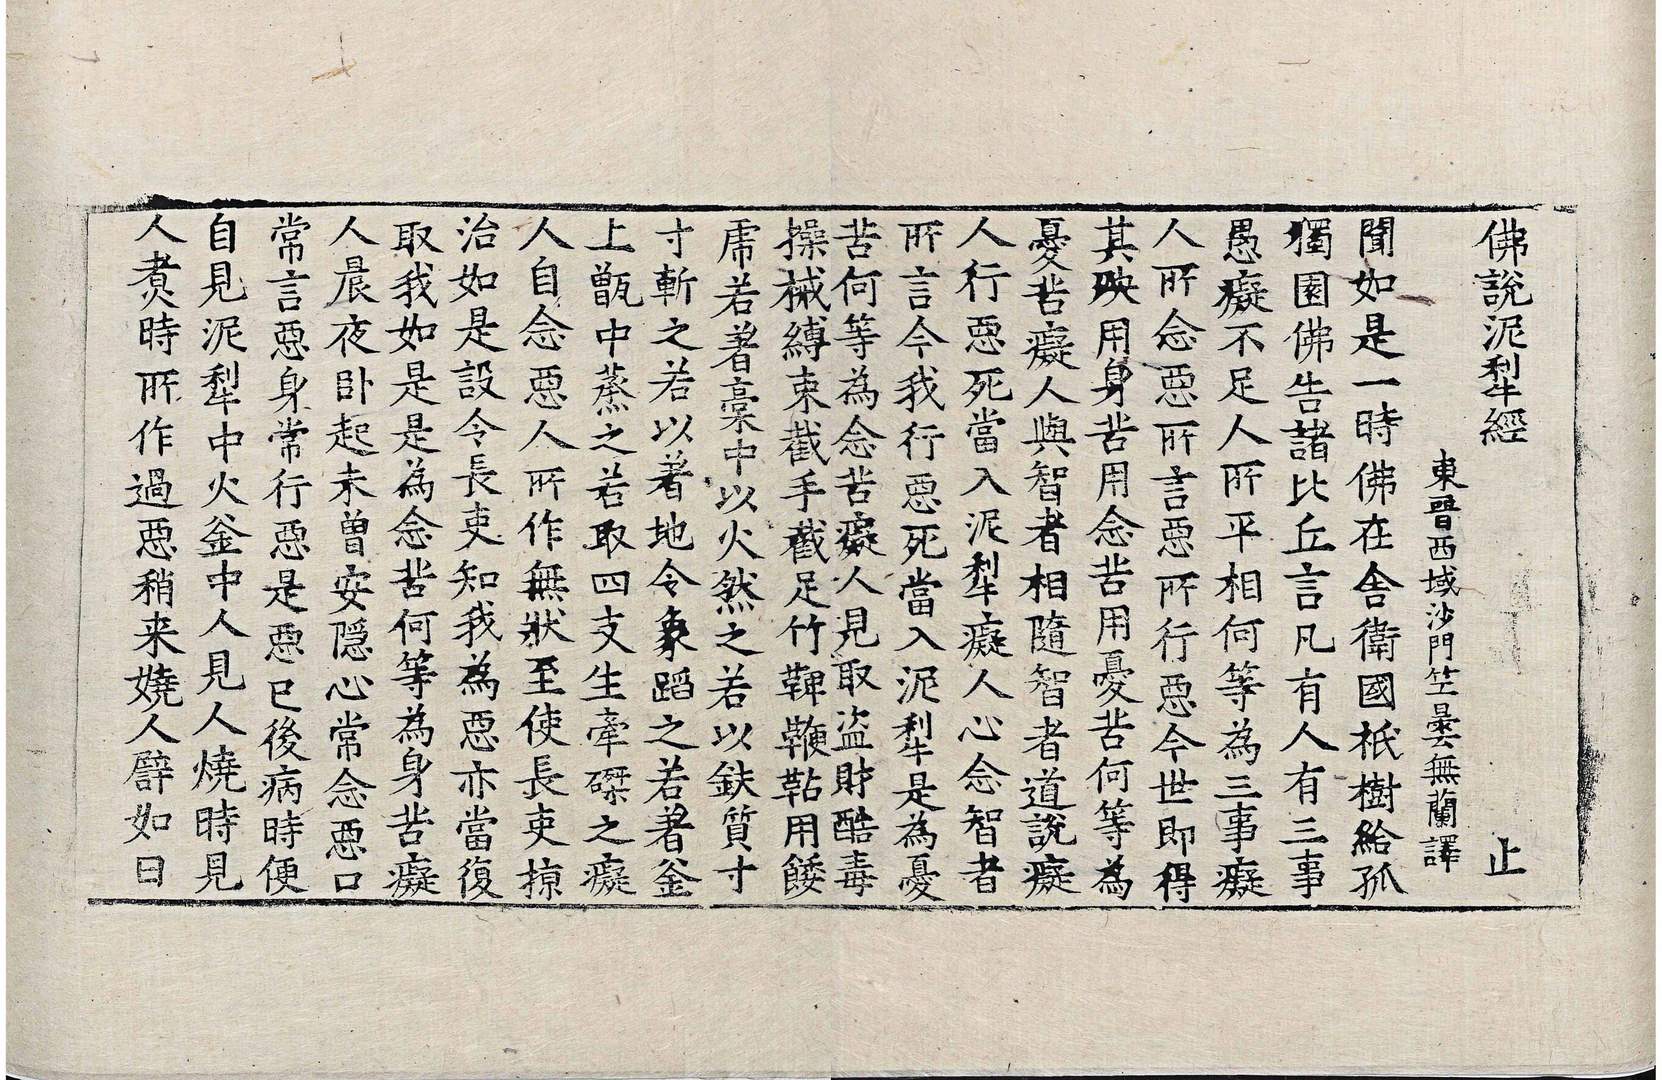 佛說泥犁經 止
東晉西域沙門竺曇無蘭譯
聞如是一時佛在舍衛國祇樹給孤
獨園佛告諸比丘言凡有人有三事
愚癡不足人所平相何等為三事癡
人所念惡所言惡所行惡今世即得
其殃用身苦用念苦用憂苦何等為
憂苦癡人與智者相隨智者道說癡
人行惡死當入泥犁癡人心念智者
所言今我行惡死當入泥犁是為憂
苦何等為念苦癡人見取盜財酷毒
操械縛束截手截足竹鞞鞭鞊用餧
虎若著稾中以火然之若以鈇質寸
寸斬之若以著地令象蹈之若著釜
上甑中蒸之若取四支生牽磔之癡
人自念惡人所作無狀至使長吏掠
治如是設令長吏知我為惡亦當復
取我如是是為念苦何等為身苦癡
人晨夜臥起未曾安隱心常念惡口
常言惡身常行惡是惡已後病時便
自見泥犁中火釜中人見人燒時見
人煮時所作過惡稍来嬈人譬如日